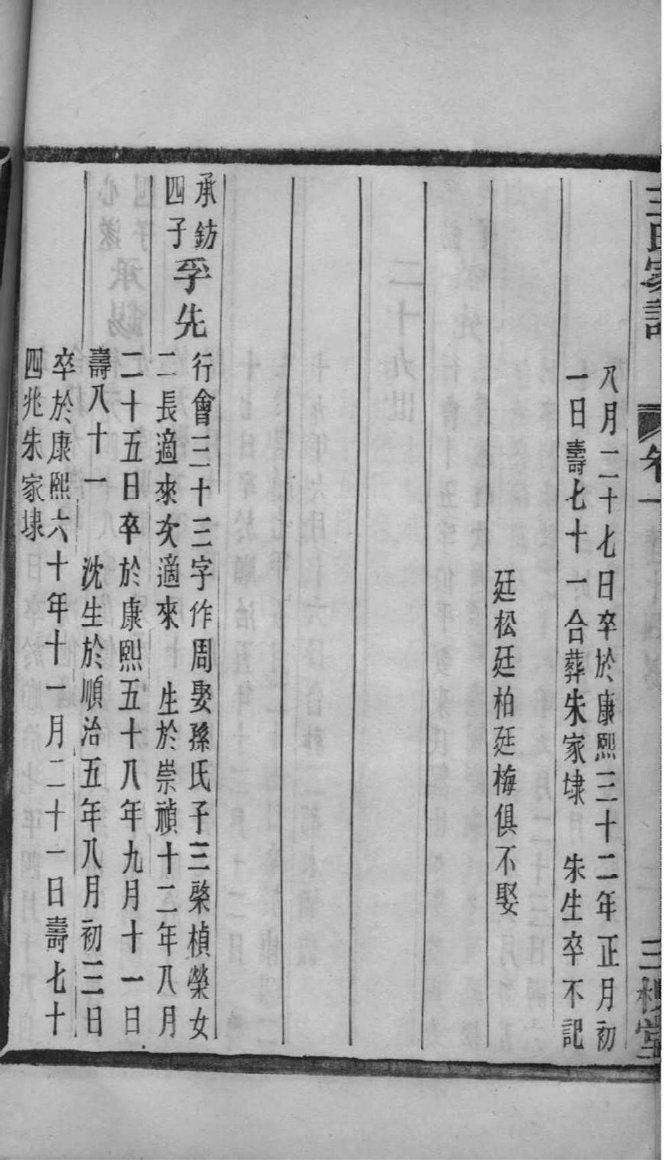 王氏家譜
卷一
三槐堂
八月二十七日卒於康熙三十二年正月初
一日壽七十一合葬朱家埭 朱生卒不記
廷松廷柏廷梅俱不娶
承鈁
四子
孚先
行會三十三字作周娶孫氏子三棨楨榮女
二長適來次適來 生於崇禎十二年八月
二十五日卒於康熙五十八年九月十一日
壽八十一 沈生於順治五年八月初三日
卒於康熙六十年十一月二十一日壽七十
四兆朱家埭